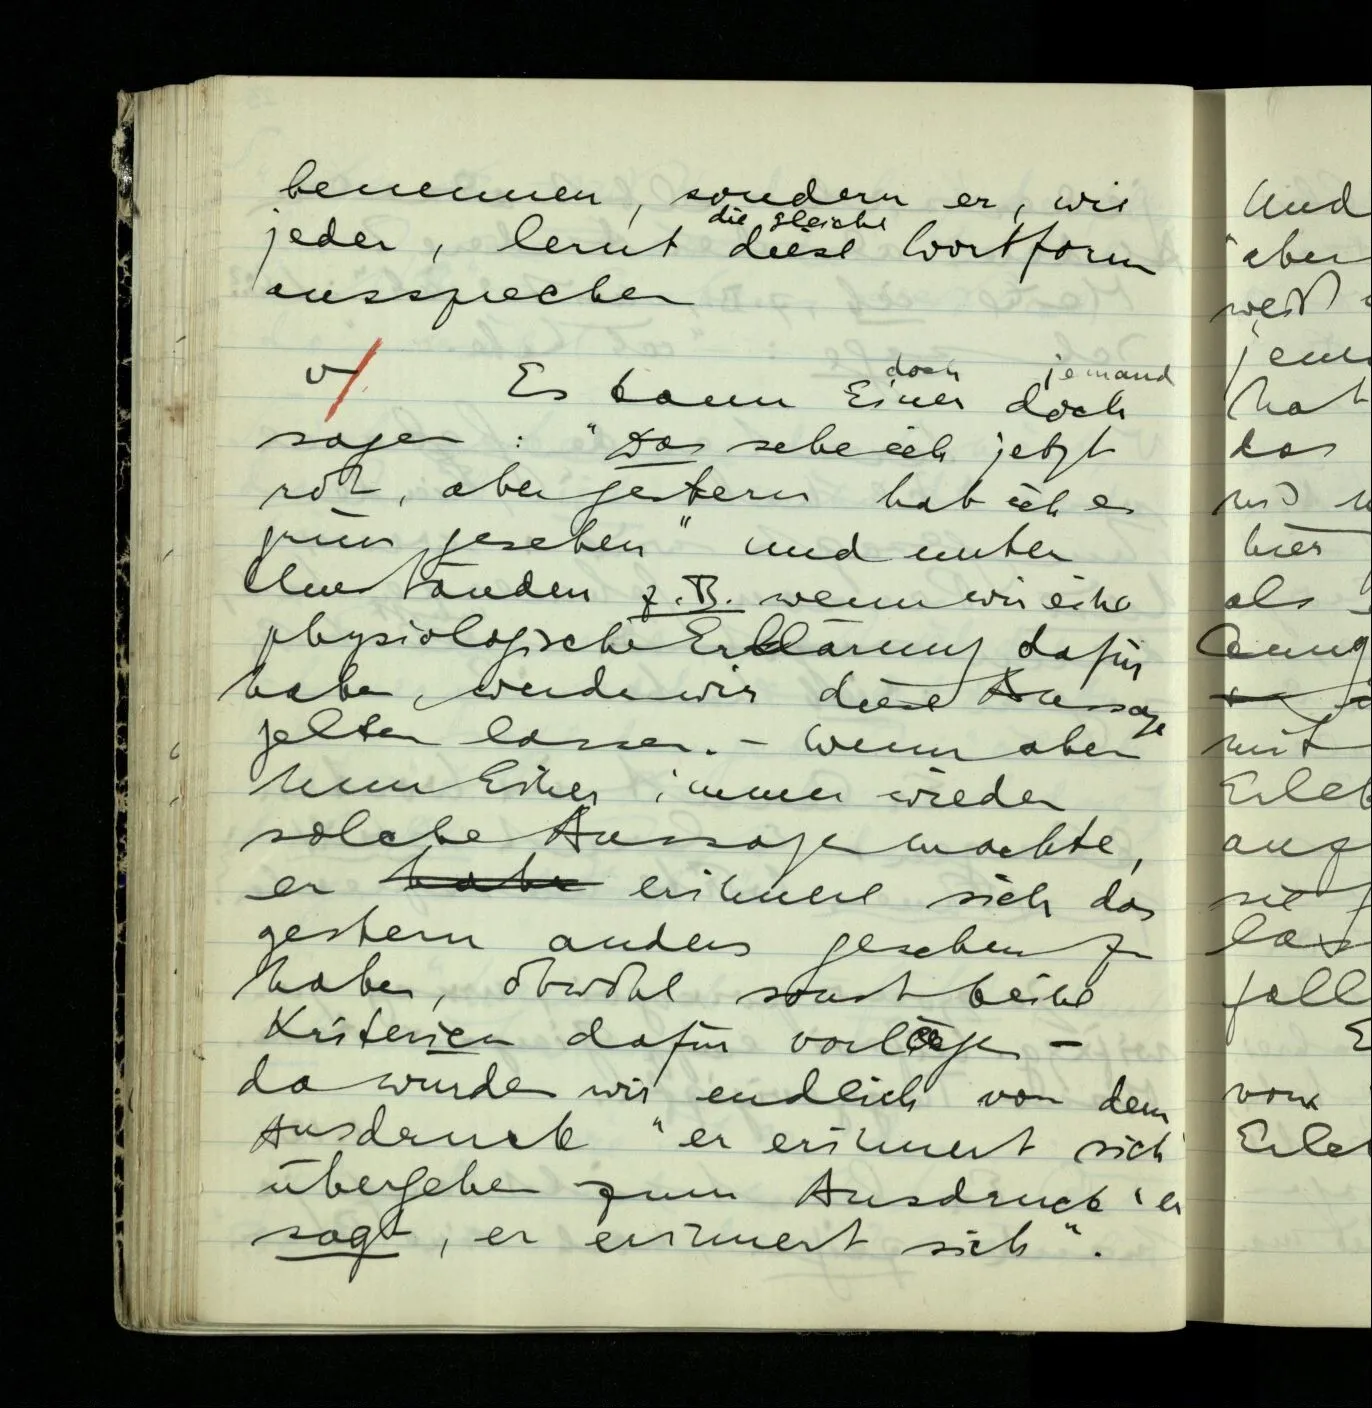 benennen, sondern er, wie
die gleiche
jeder, lernt diese Wortform
aussprechen
doch jemand
Es kann Einer doch
sagen : "Das sehe ich jetzt
rot, aber gestern hab ich es
grün gesehen" und unter
Umständen z.B. wenn wir eine
physiologische Erklärung dafür
haben, werden wir diese Aussage
gelten lassen. – Wenn aber
nun Einer immer wieder
solche Aussagen machte,
er habe erinnere sich das
gestern anders gesehen zu
haben, obwohl sonst keine
Kriterien dafür vorlägen –
da würden wir endlich von dem
Ausdruck "er erinnert sich"
übergehen zum Ausdruck "er
sagt, er erinnert sich".
Und
aber
weiß
jem
hat
das
und
hier
als
mit
Erleb
ang
sie
las
fall
E
vom
Erleb